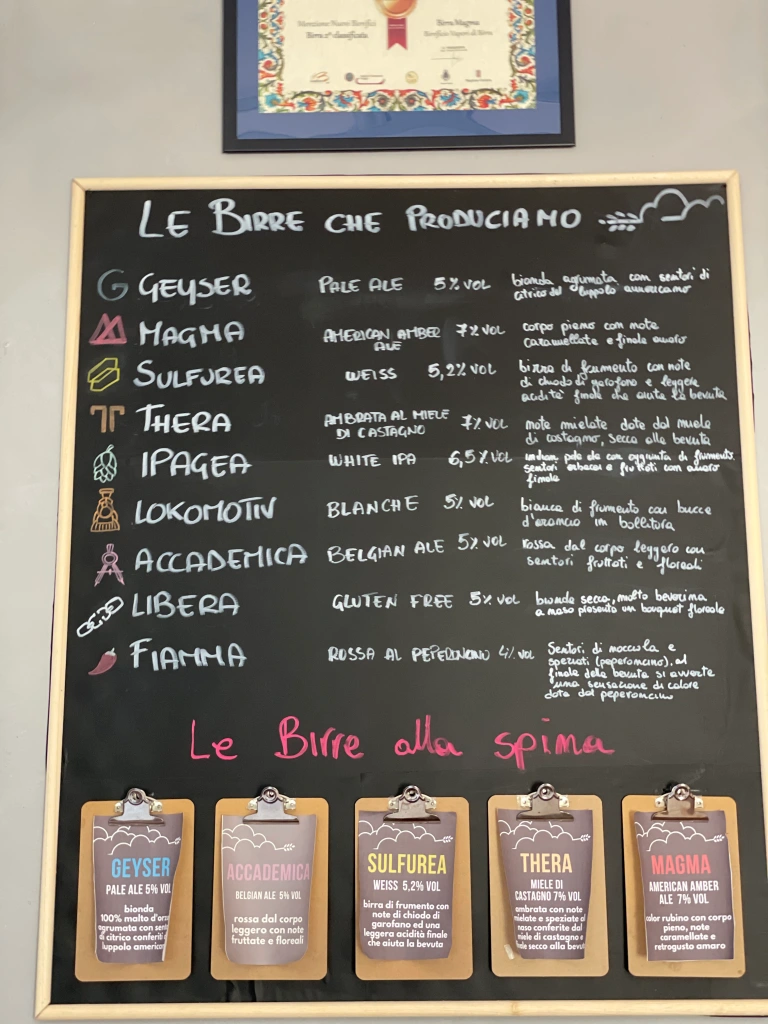 Menzione Nuovi Birrifici
Birra 2ª classificata
Birra Magma
Birrificio Vapori di Birra
LE BIRRE CHE PRODUCIAMO
G GEYSER PALE ALE 5% VOL
bionda agrumata con sentori di
citrico del luppolo americano
MAGMA AMERICAN AMBER
ALE 7% VOL
corpo pieno con note
caramellate e finale amaro
SULFUREA WEISS 5,2% VOL
birra di frumento con note
di chiodo di garofano e leggera
acidità finale che aiuta la bevuta
THERA AMBRATA AL MIELE
DI CASTAGNO 7% VOL
note mielate date dal miele
di castagno, secca alla bevuta
IPAGEA WHITE IPA 6,5% VOL
indian pale ale con aggiunta di frumento
sentori erbacei e fruttati con amaro
finale
LOKOMOTIV BLANCHE 5% VOL
bianca di frumento con bucce
d'arancio in bollitura
ACCADEMICA BELGIAN ALE 5% VOL
rossa dal corpo leggero con
sentori fruttati e floreali
LIBERA GLUTEN FREE 5% VOL
bionda secca, molto beverina
a naso presenta un bouquet floreale
FIAMMA ROSSA AL PEPERONCINO 4% VOL
Sentori di nocciola e
speziati (peperoncino), al
finale della bevuta si avverte
una sensazione di calore
data dal peperoncino
Le Birre alla spina
GEYSER
PALE ALE 5% VOL
bionda
100% malto d'orzo
agrumata con sent
di citrico conferiti d
luppolo american
ACCADEMICA
BELGIAN ALE 5% VOL
rossa dal corpo
leggero con note
fruttate e floreali
SULFUREA
WEISS 5,2% VOL
birra di frumento con
note di chiodo di
garofano ed una
leggera acidità finale
che aiuta la bevuta
THERA
MIELE DI
CASTAGNO 7% VOL
ambrata con note
mielate e speziate al
naso conferite dal
miele di castagno e
secco alla bevut
MAGMA
AMERICAN AMBER
ALE 7% VOL
color rubino con corpo
pieno, note
caramellate e
retrogusto amaro